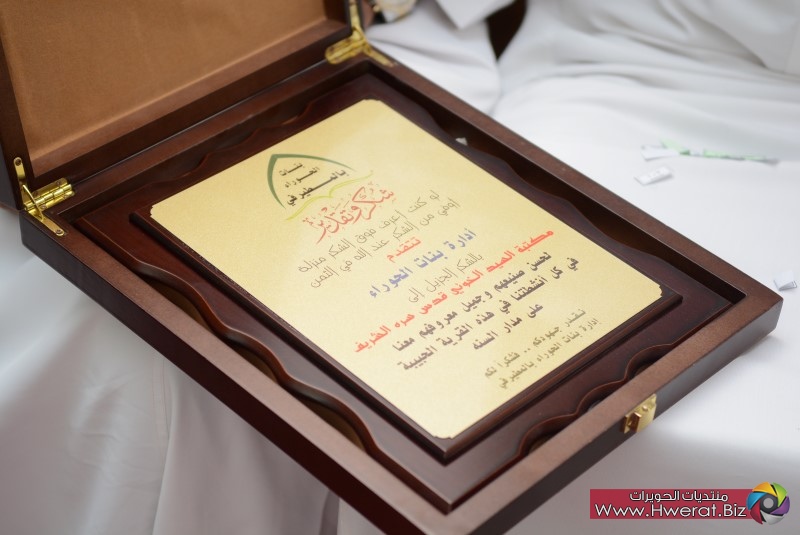 بنات
الحوراء
بالمطيرفي
شكر وتقدير
لو كنت أعرف فوق الشكر منزلة
أوفى من الشكر عند الله في الثمن
إدارة بنات الحوراء
تتقدم
بالشكر الجزيل إلى
مكتبة السيد الخوئي قدس سره الشريف
لحسن صنيعهم وجميل معروفهم معنا
في كل أنشطتنا في هذه القرية الحبيبة
على مدار السنة
نقدر جهودكم .. فشكرا لكم
إدارة بنات الحوراء بالمطيرفي
منتديات الحويرات
Www.Hwerat.Biz